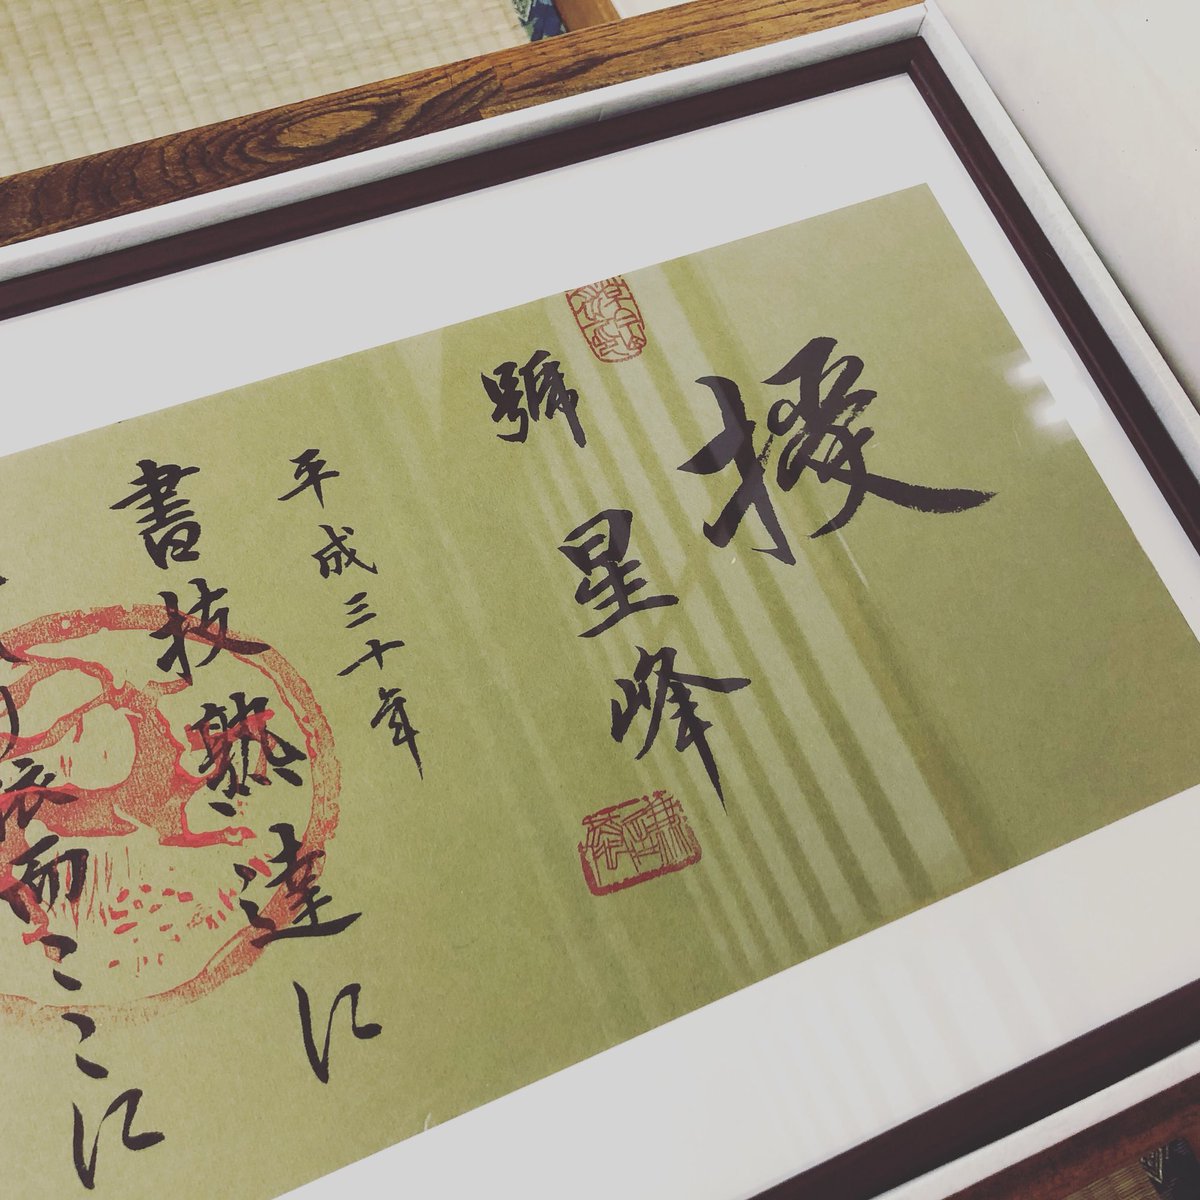 授
號 星峰
平成三十年
書技熟達に
り依而ここに